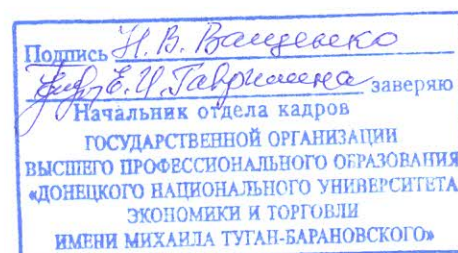 Подпись Н. В. Ващенко
Е. И. Гаврилина заверяю
Начальник отдела кадров
ГОСУДАРСТВЕННОЙ ОРГАНИЗАЦИИ
ВЫСШЕГО ПРОФЕССИОНАЛЬНОГО ОБРАЗОВАНИЯ
«ДОНЕЦКОГО НАЦИОНАЛЬНОГО УНИВЕРСИТЕТА
ЭКОНОМИКИ И ТОРГОВЛИ
ИМЕНИ МИХАИЛА ТУГАН-БАРАНОВСКОГО»